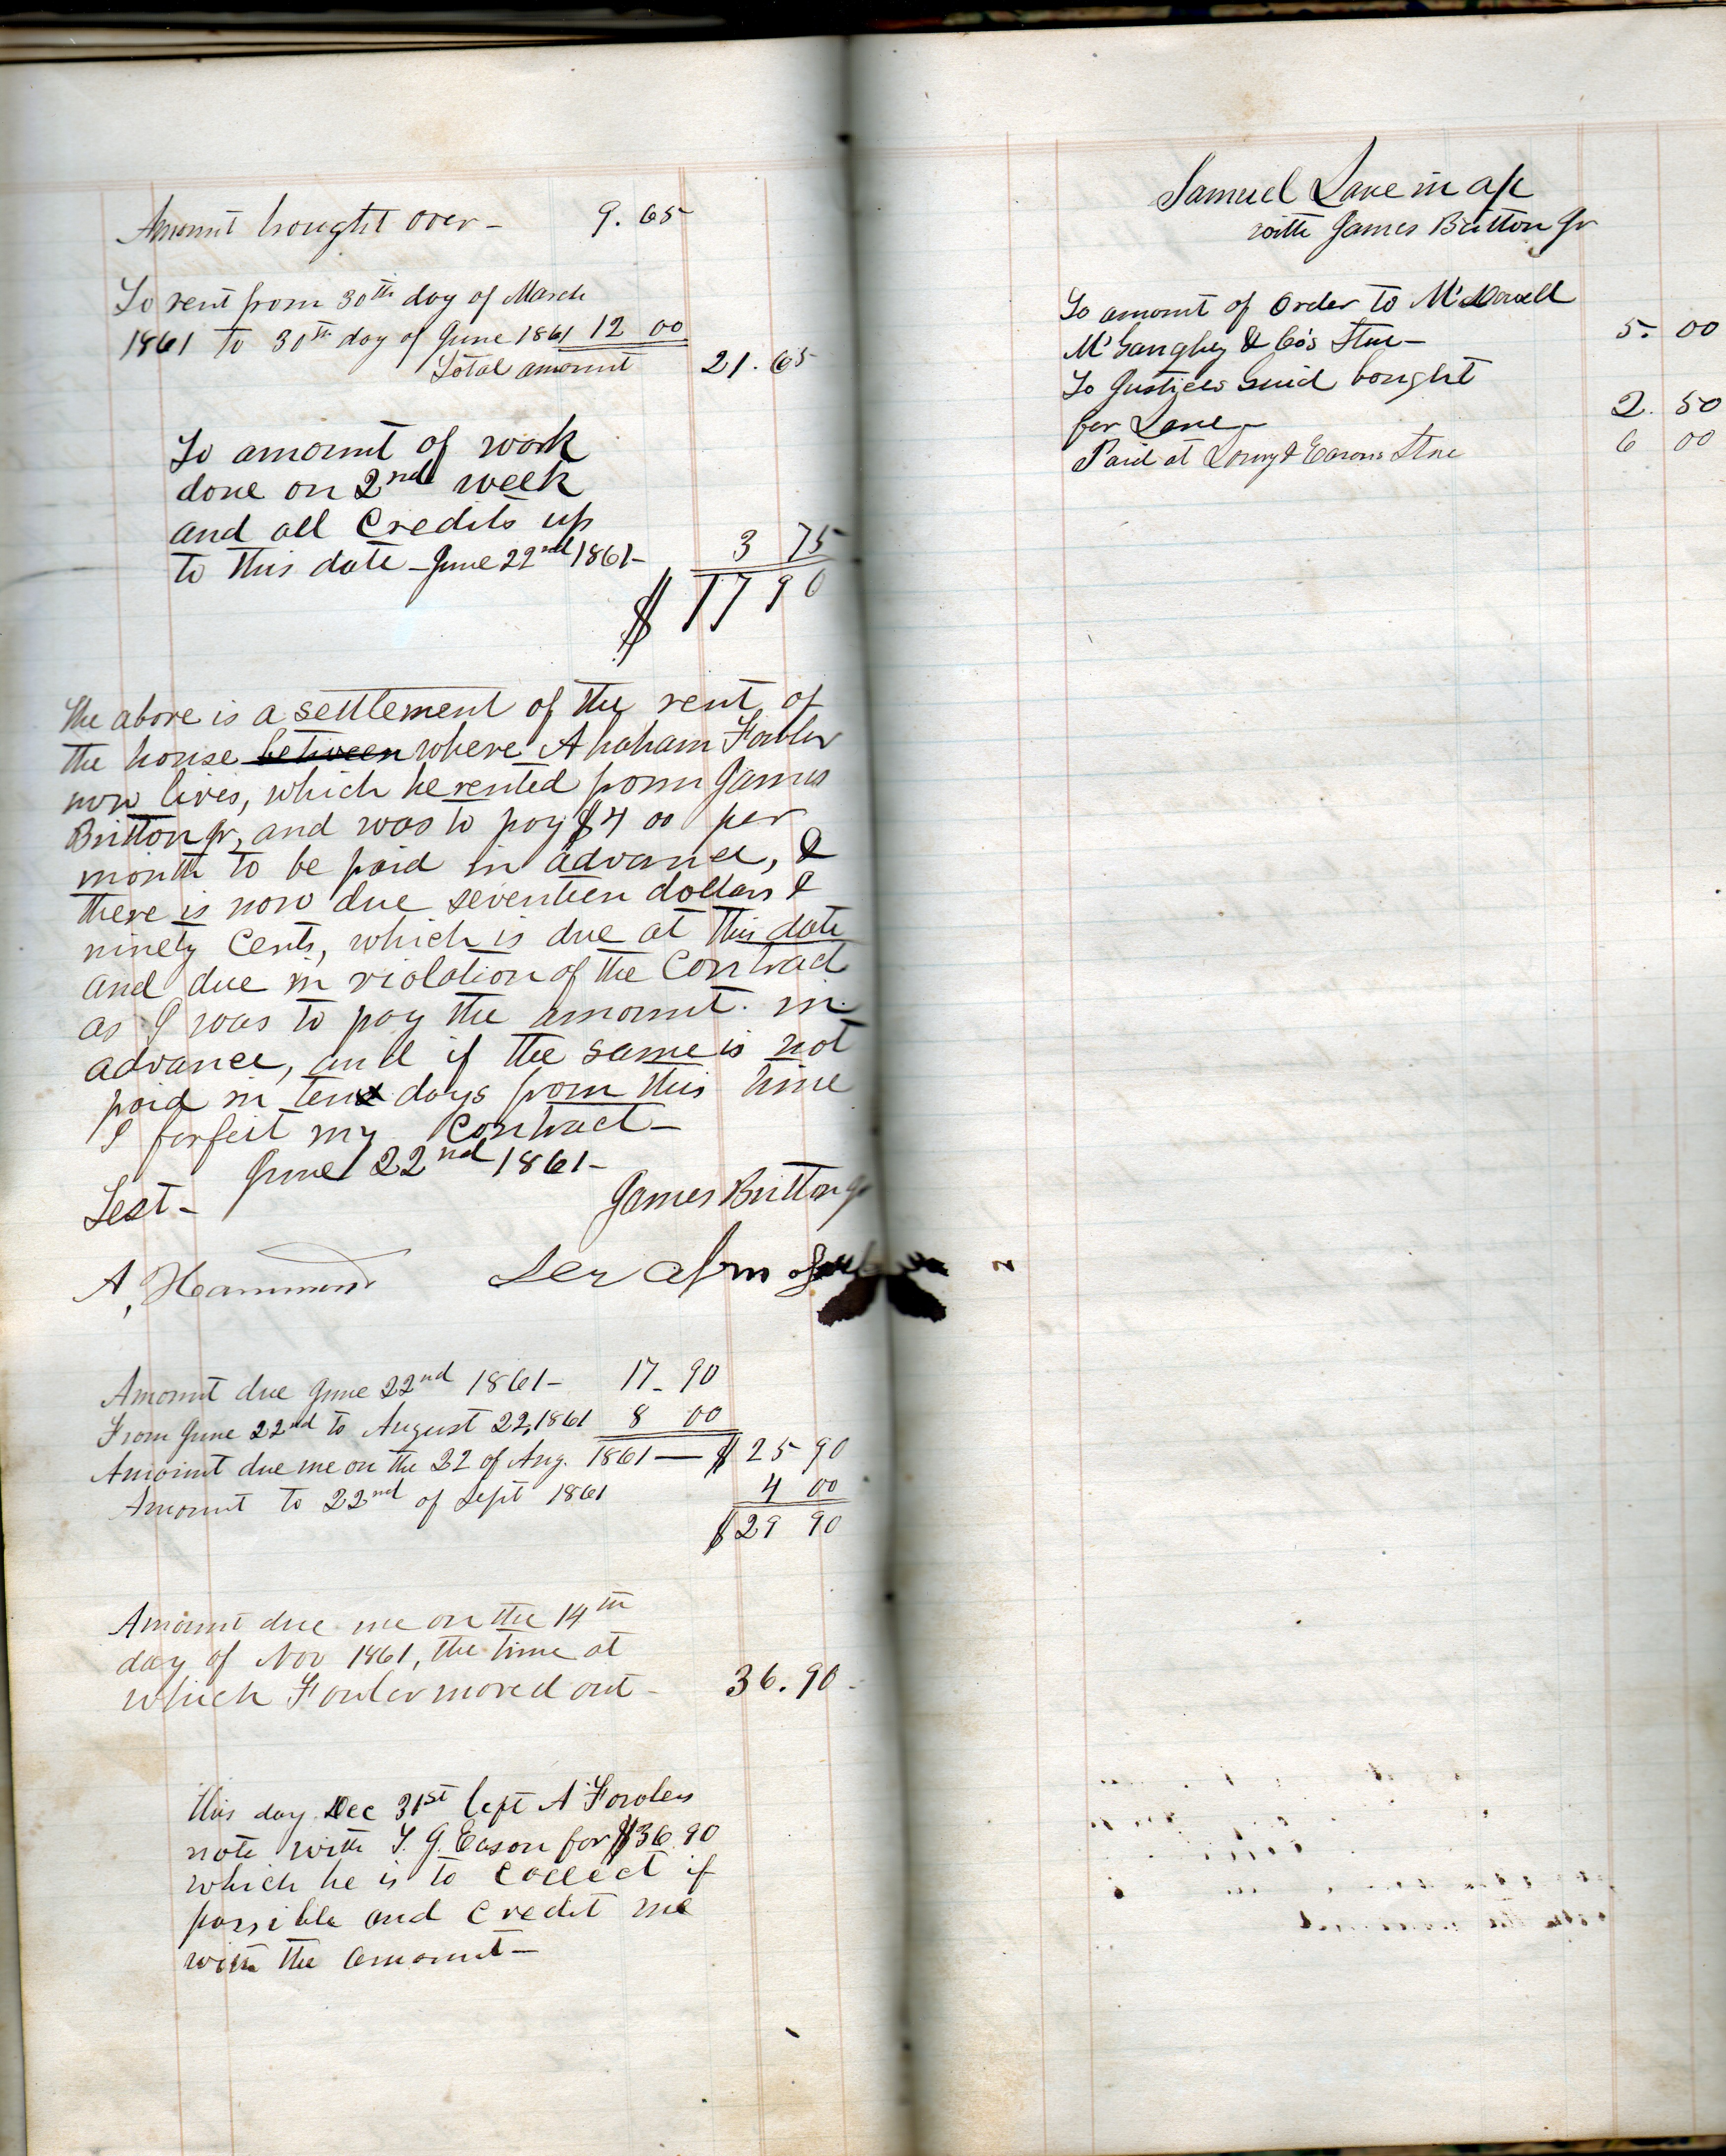 Amount brought over – 9.65
To rent from 30th day of March
1861 to 30th day of June 1861 12 00
Total amount 21.65
To amount of work
done on 2nd week
and all Credits up
to this date – June 22nd 1861 – 3 75
$ 17 90
The above is a settlement of the rent of
the house between where Abraham Fowler
now lives, which he rented from James
Britton Jr, and was to pay $4 00 per
month to be paid in advance, &
there is now due seventeen dollars &
ninety Cents, which is due at this date
and due in violation of the Contract
as I was to pay the amount in
advance, and if the same is not
paid in ten days from this time
I forfeit my Contract –
June 22nd 1861 –
Test – James Britton Jr
A. Hammond
Amount due June 22nd 1861 – 17 – 90
From June 22nd to August 22, 1861 8 00
Amount due me on the 22 of Aug. 1861 — $ 25 90
Amount to 22nd of Sept 1861 4 00
$ 29 90
Amount due me on the 14th
day of Nov 1861, the time at
which Fowler moved out – 36.90
This day Dec 31st left A Fowlers
note with T. G. Eason for $36.90
which he is to Collect if
possible and Credit me
with the amount –
Samuel Lane in a/c
with James Britton Jr
To amount of Order to McDowell
McGaughey & Co's Store – 5. 00
To Justices bought
for Lane – 2. 50
Paid at Store 6 00